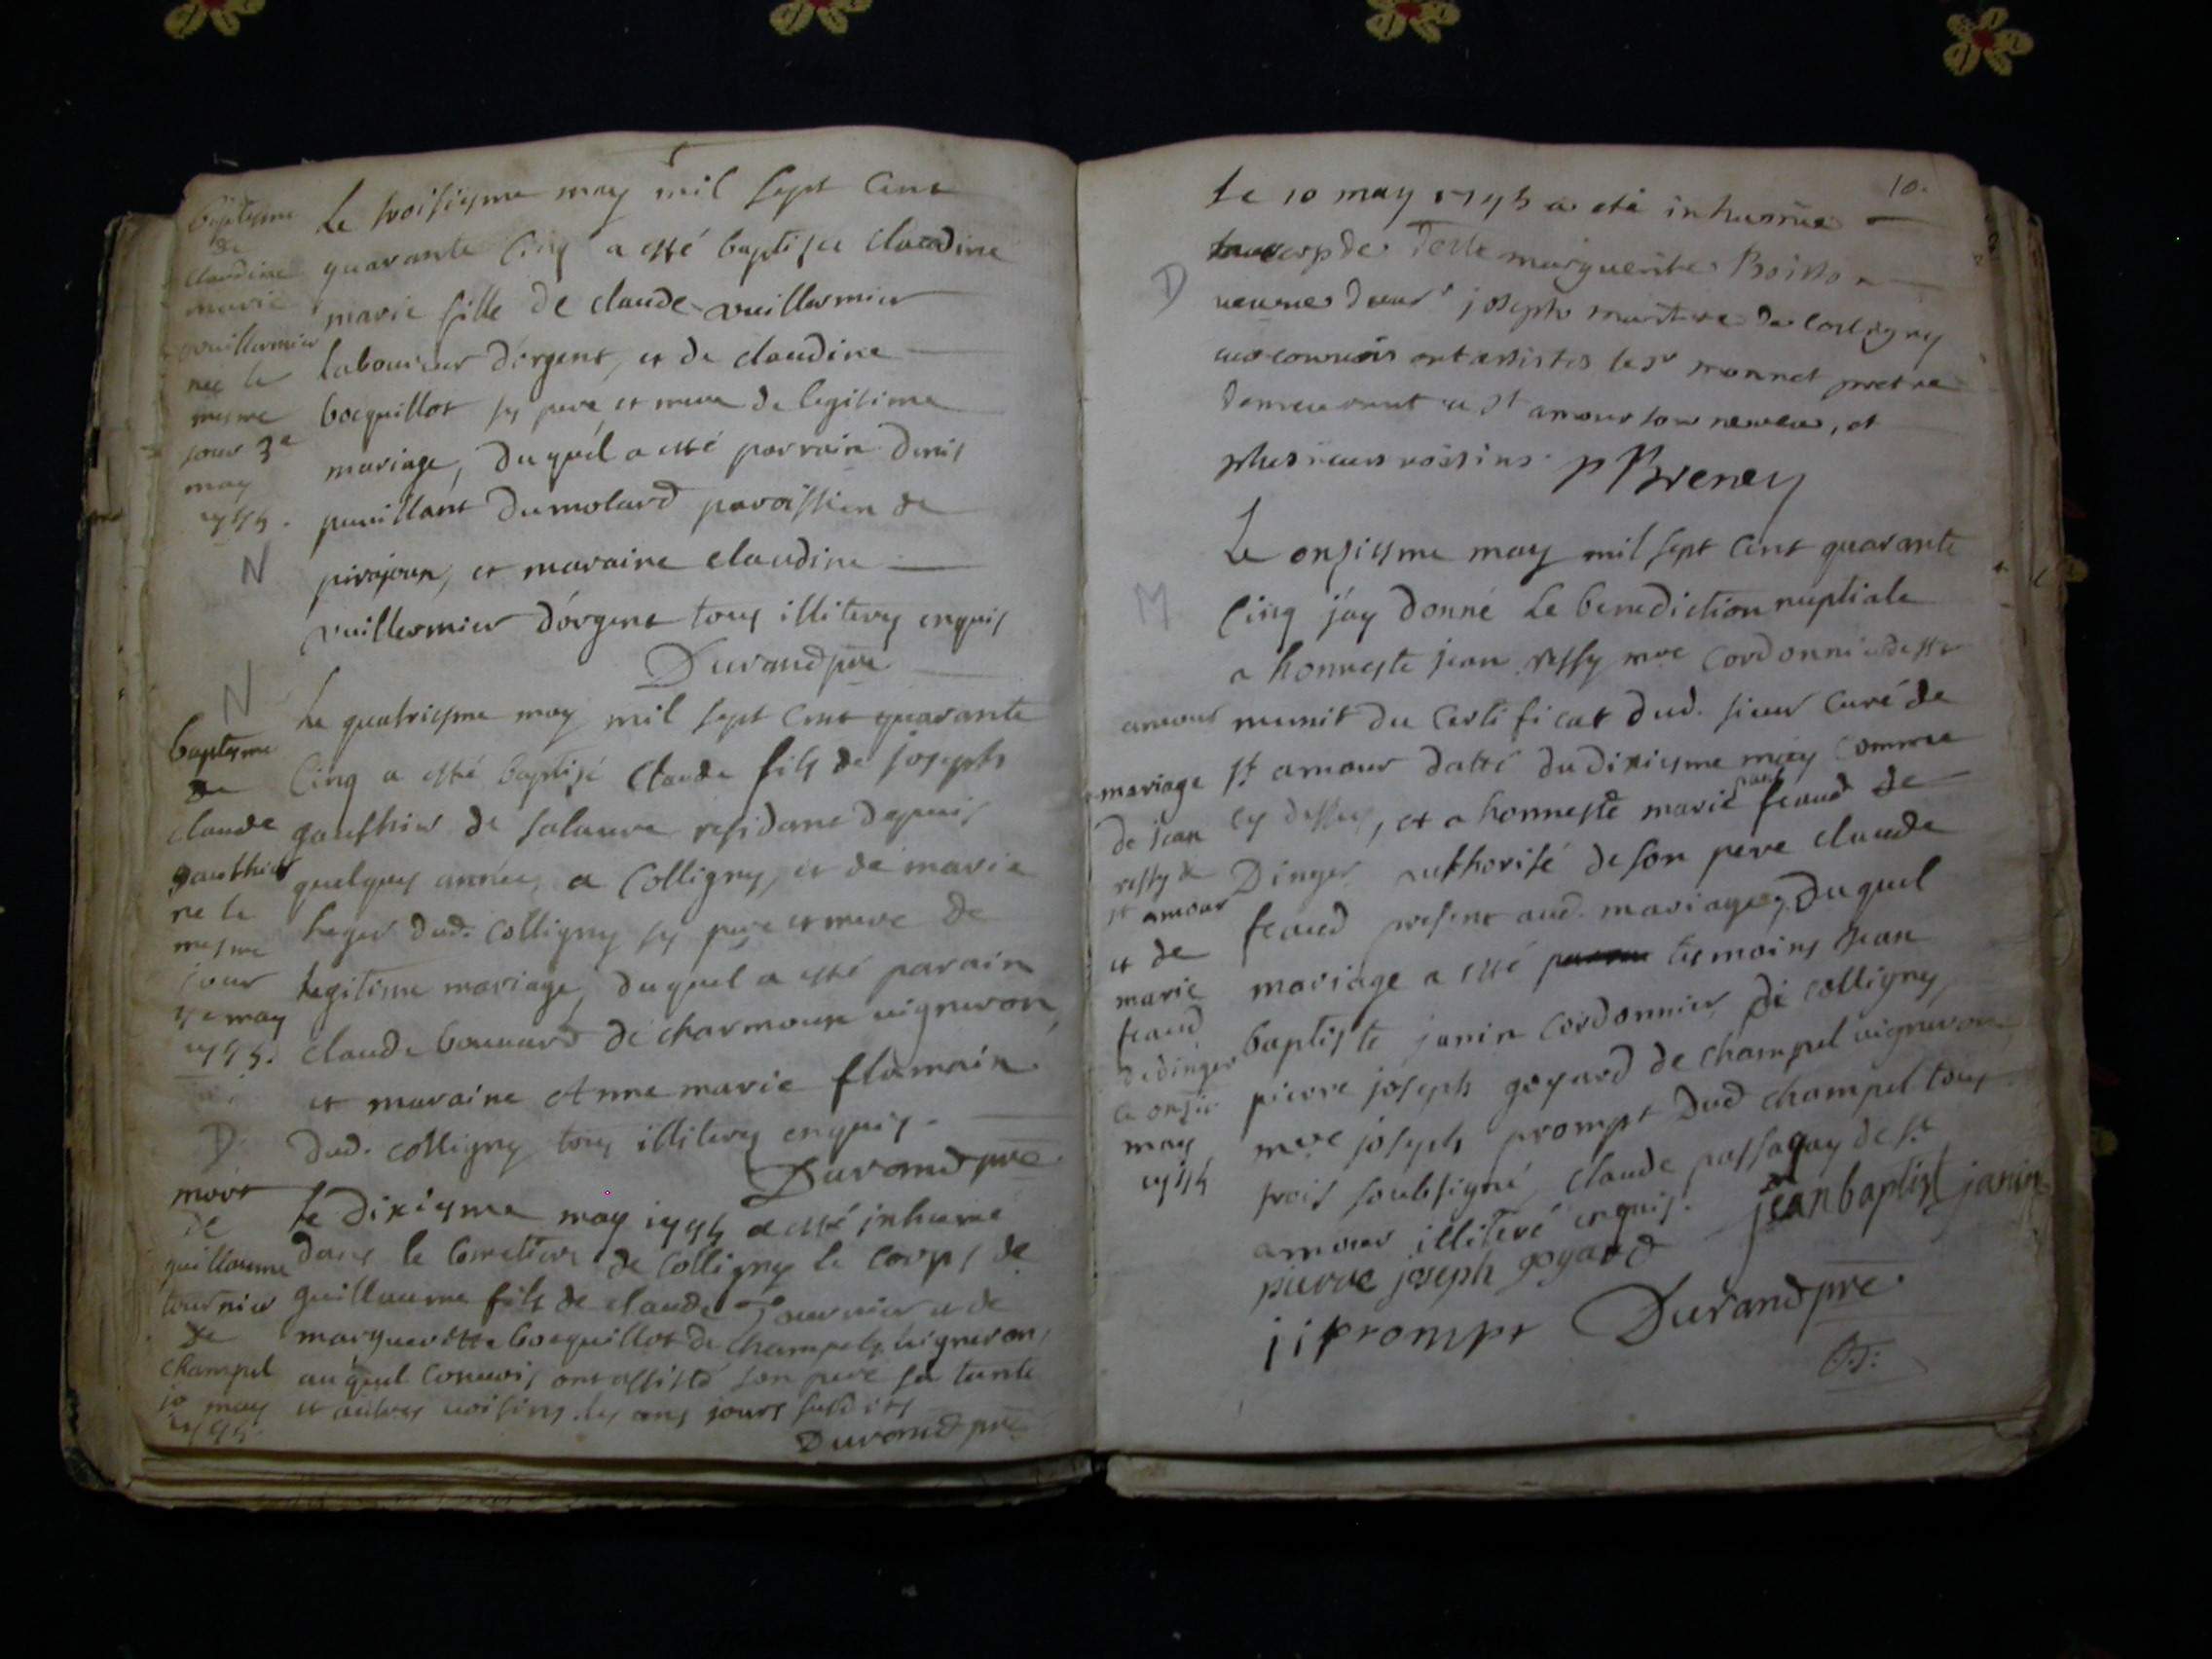 baptesme
de
claudine
marie
vuillermier
née le
mesme
jour 3e
may
1745.
N
Le troisiesme may mil sept cent
quarante cinq a esté baptisée claudine
marie fille de claude vuillermier
laboureur d'orgent, et de claudine
bocquillot ses pere et mere de legitime
mariage, duquél a esté parrain denis
puvillant dumolard paroissien de
pirajoux, et maraine claudine
vuillermier d'orgent tous illiterez enquis
Durand pre
N
baptesme
de
claude
gauthier
né le
mesme
jour
4e may
1745.
Le quatriesme may mil sept cent quarante
cinq a esté baptisé claude fils de joseph
gauthier de residant depuis
quelques année, a colligny, et de marie
dud. colligny ses pere et mere de
legitime mariage, duquel a esté parain
claude bouvard de charmoux vigneron,
et maraine Anne marie flamain
dud. colligny tous illiterez enquis.
Durand pre
D
mort
de
guillaume
tournier
de
champel
10 may
1745.
Le dixiesme may 1745 a esté inhumé
dans le cemetiere de colligny le corps de
guillaume fils de claude Tournier et de
margueritte bocquillot de champel, vigneron,
auquel convois ont assisté son pere sa tante
et autres voisins les ans jours susdits
Durand pre
10.
Le 10 may 1745 a eté inhumée
corps de Delle marguerite
D
veuve du sr joseph de colligny
aux convois ont assistés le sr monnet pretre
demeurant a st amour son neveu, et
plusieurs voisins. P Breney
M
Le onziesme may mil sept cent quarante
cinq j'ay donné la benediction nuptiale
a honneste jean ressy mre cordonnier de st
amour munit du certificat dud. sieur curé de
st amour datté du dixiesme may comme
cy dessus, et a honneste marie feaud de
Dinger authorisé de son pere claude
feaud present aud. mariage, duquel
mariage a esté tesmoins jean
baptiste janin cordonnier de colligny,
pierre joseph goyard de champel vigneron
mre joseph prompt dud champel tous
trois soubsigné, claude passaquay de st
amour illiteré enquis. jean baptist janin
pierre joseph goyard
mariage
de jean
ressy de
st amour
et de
marie
feaud
de dinger
ce onzie
may
1745
j j prompt Durand pre.